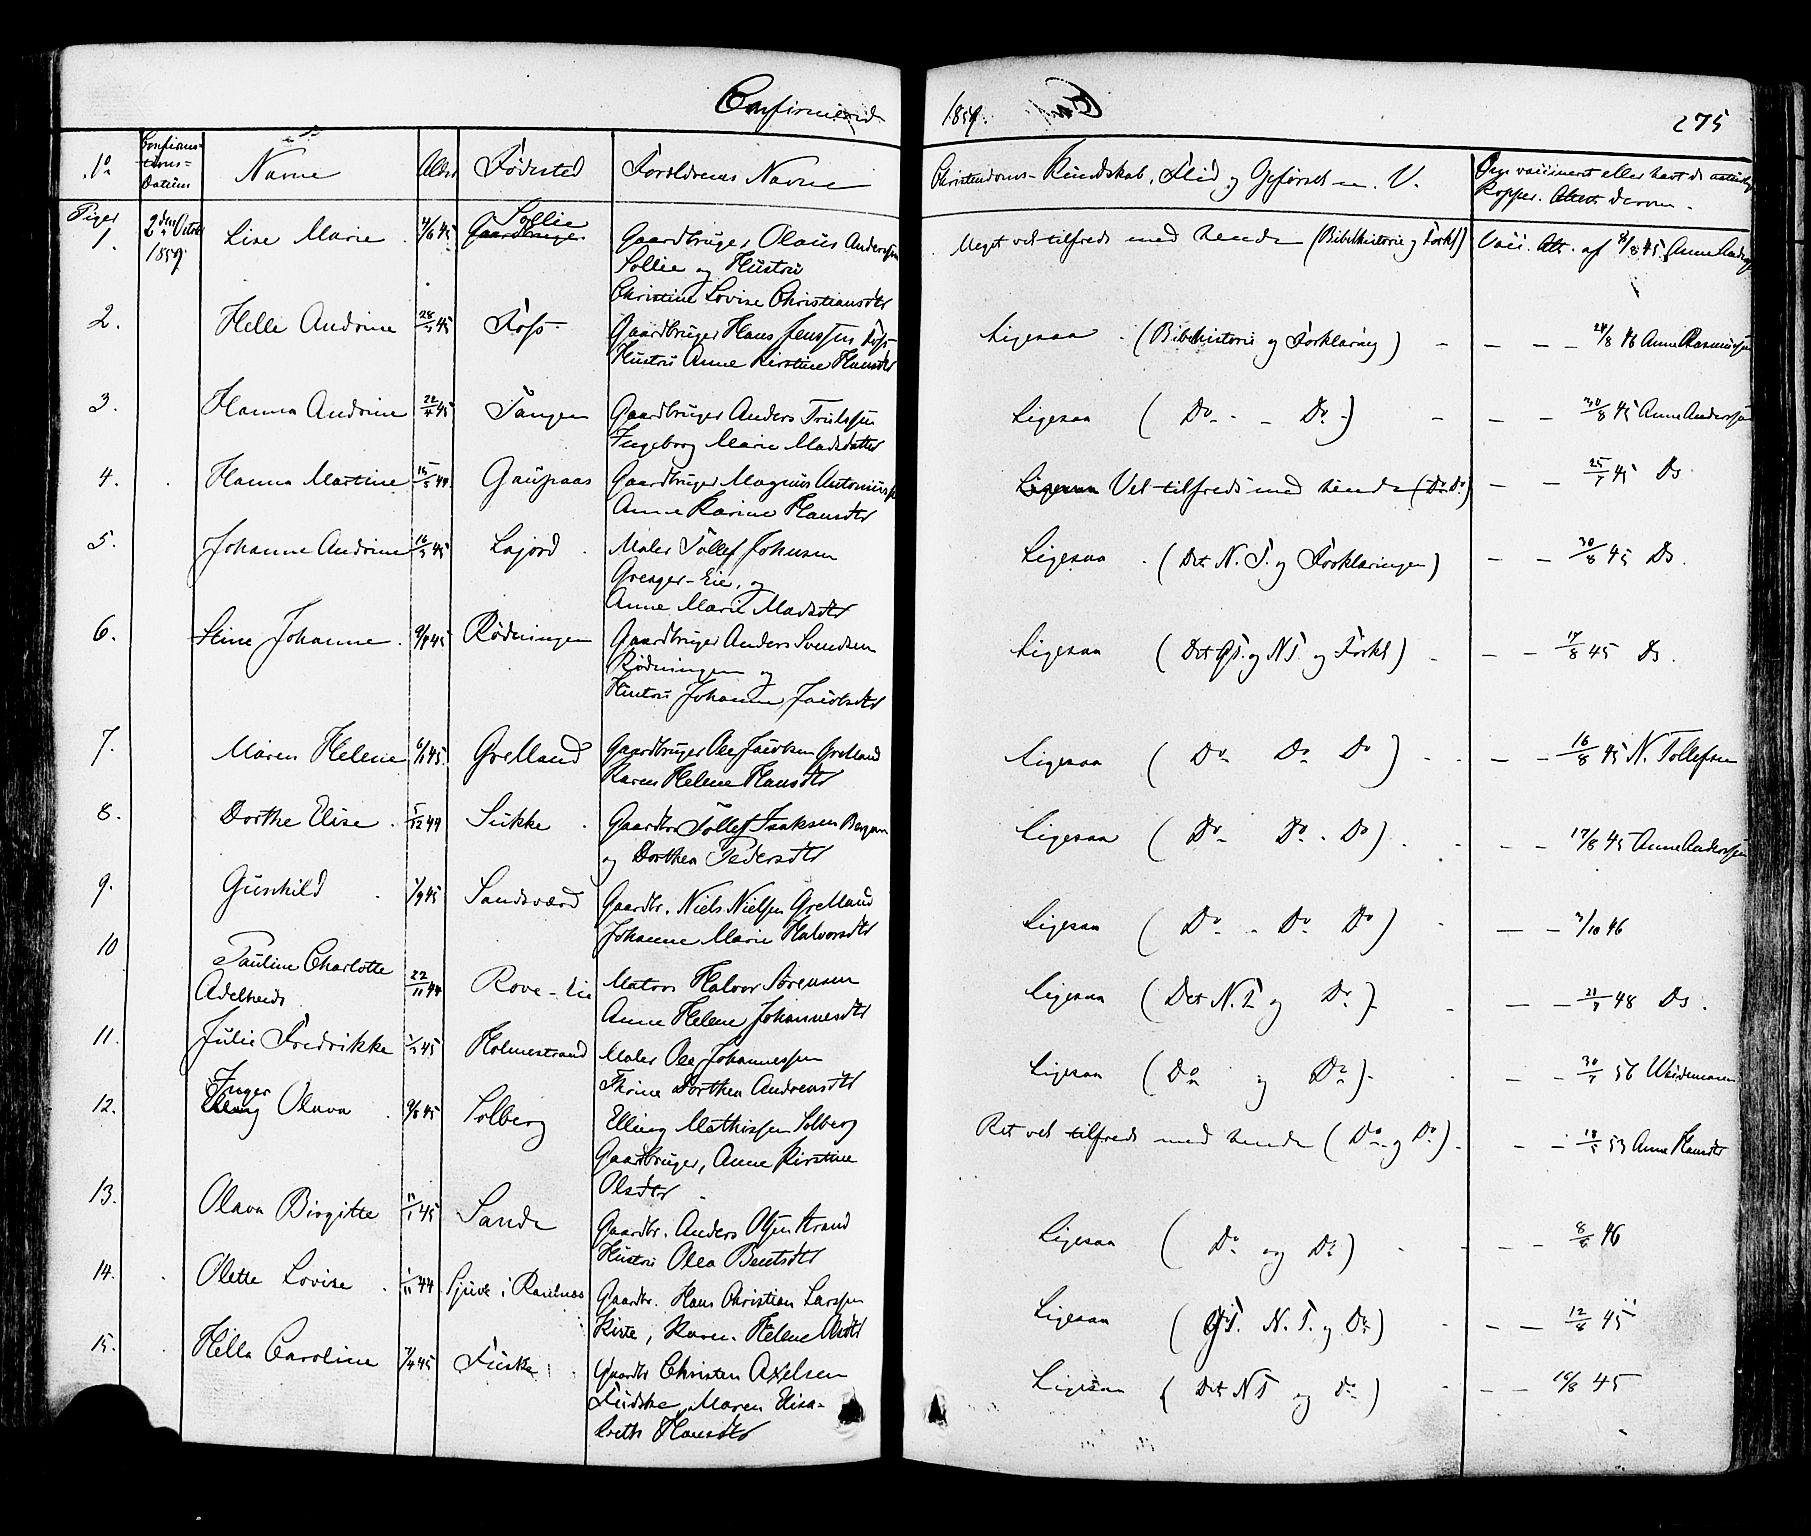 Confirmerede 1859. 275
No Confirmations-Datum Navne Alder Fødested Forældrenes Navne Christendoms-Kundskab, Flid og Opførsel m. V.
Piger
1. 2den Octob 1859. Lise Marie 4/6 45 Sollie Gaardbruger Olaus Anderssen Meget vel tilfreds med hende (Bibelhistorie og Forkl) Vacc. Att. af 8/8 45. Anne
Sollie og Hustru
Christine Lovise Christiansdtr
2. Helle Andrine 28/ 45 Foss Gaardbruger Hans Jenssen Foss Ligesaa (Bibelhistorie og Forklaring) - - - 24/8 46 Anne Rasmussen
Hustru Anne Kirstine Hansdtr
3. Hanna Andrine 22/ 45 Tangen Gaardbruger Anders Trulssen Ligesaa (Do - Do) - - 30/8 45 Anne Anderssen
Ingeborg Marie Madsdatter
4. Hanna Martine 15/5 44 Gaupaas Gaardbruger Magnus Ligesaa Vel tilfreds med hende (Do Do) - - 25/7 45 Ds
Anne Karine Hansdtr
5. Johanne Andrine 16/3 45 Lajord Maler Tollef Johnsen Ligesaa (Det N. T. og Forklaringen) - - 30/8 45 Ds.
Greager-Eie, og
Anne Marie Madsdtr
6. Stine Johanne 9/8 45 Rødningen Gaardbruger Anders Svendsen Ligesaa (Det GT. og NT og Forkl) - - 17/8 45 Ds.
Rødningen og
Hustru Johanne Jacobsdtr
7. Maren Helene 6/1 45 Grelland Gaardbruger Ole Jacobsen Grelland Ligesaa (Do Do Do) - - 16/8 45 N. Tollefsen
Karen Helene Hansdtr
8. Dorthe Elise 5/12 44 Sukke Gaardbr Tollef Isaksen Bergan Ligesaa (Do Do Do) - - 17/8 45 Anne Anderssen
og Dorthea Pedersdtr
9. Gunhild 1/9 45 Sandsværd Gaardbr. Niels Nielsen Grelland Ligesaa (Do - Do Do) - - 3/10 46
Johanne Marie Halvorsdtr
10 Pauline Charlotte
Adelheide 22/11 44 Rove-Eie Matros Halvor Sørensen Ligesaa (Det N. T og Do) - - 21/ 48 Ds.
Anne Helene Johannesdtr
11. Julie Fredrikke 1/2 45 Holmestrand Maler Ole Johannessen Ligesaa (Do og Do) - - 30/7 56 Weidemann
Thrine Dorthea Andreasdtr
12. Inger Olava 9/6 45 Solberg Elling Mathissen Solberg Ret vel tilfreds med hende (Do og Do) - - 18/5 53 Anne Hansdtr
Gaardbruger, Anne Kirstine
Olsdtr
13. Olava Birgitte 11/1 45 Sande Gaardbr. Anders Strand Ligesaa (Do og Do) - - 8/8 46
Hustru Olea Bentsdtr
14. Olette Lovise 1/11 44 Gjuve i Ramnæs Gaardbr. Hans Christian Larssen Ligesaa (GT. N. T. og Do) - - 12/8 45
Kiste, Karen Helene
15. Hella Caroline 7/4 45 Fuske Gaardbr Christen Axelsen Ligesaa (Det N T og do) - - 16/8 45
Fudske, Maren Elisa-
beth Hansdtr